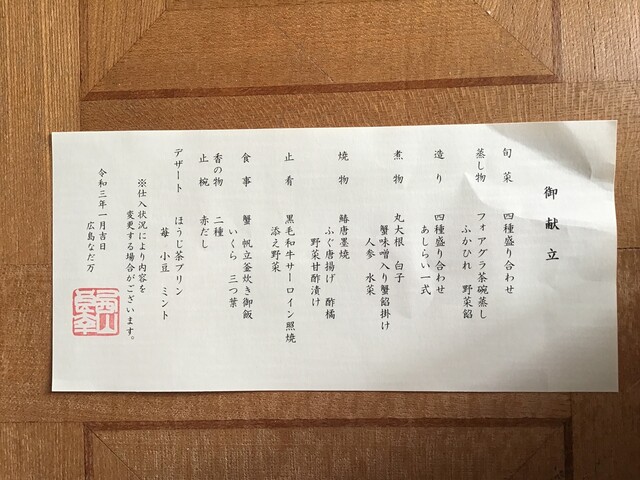 御献立
旬菜 四種盛り合わせ
蒸し物 フォアグラ茶碗蒸し
ふかひれ 野菜餡
造り 四種盛り合わせ
あしらい一式
煮物 丸大根 白子
蟹味噌入り蟹餡掛け
人参 水菜
焼物 鰆唐墨焼
ふぐ唐揚げ 酢橘
野菜甘酢漬け
止肴 黒毛和牛サーロイン照焼
添え野菜
食事 蟹 帆立釜炊き御飯
いくら 三つ葉
香の物 二種
止椀 赤だし
デザート ほうじ茶プリン
苺 小豆 ミント
※仕入状況により内容を
変更する場合がございます。
令和三年一月吉日
広島なだ万